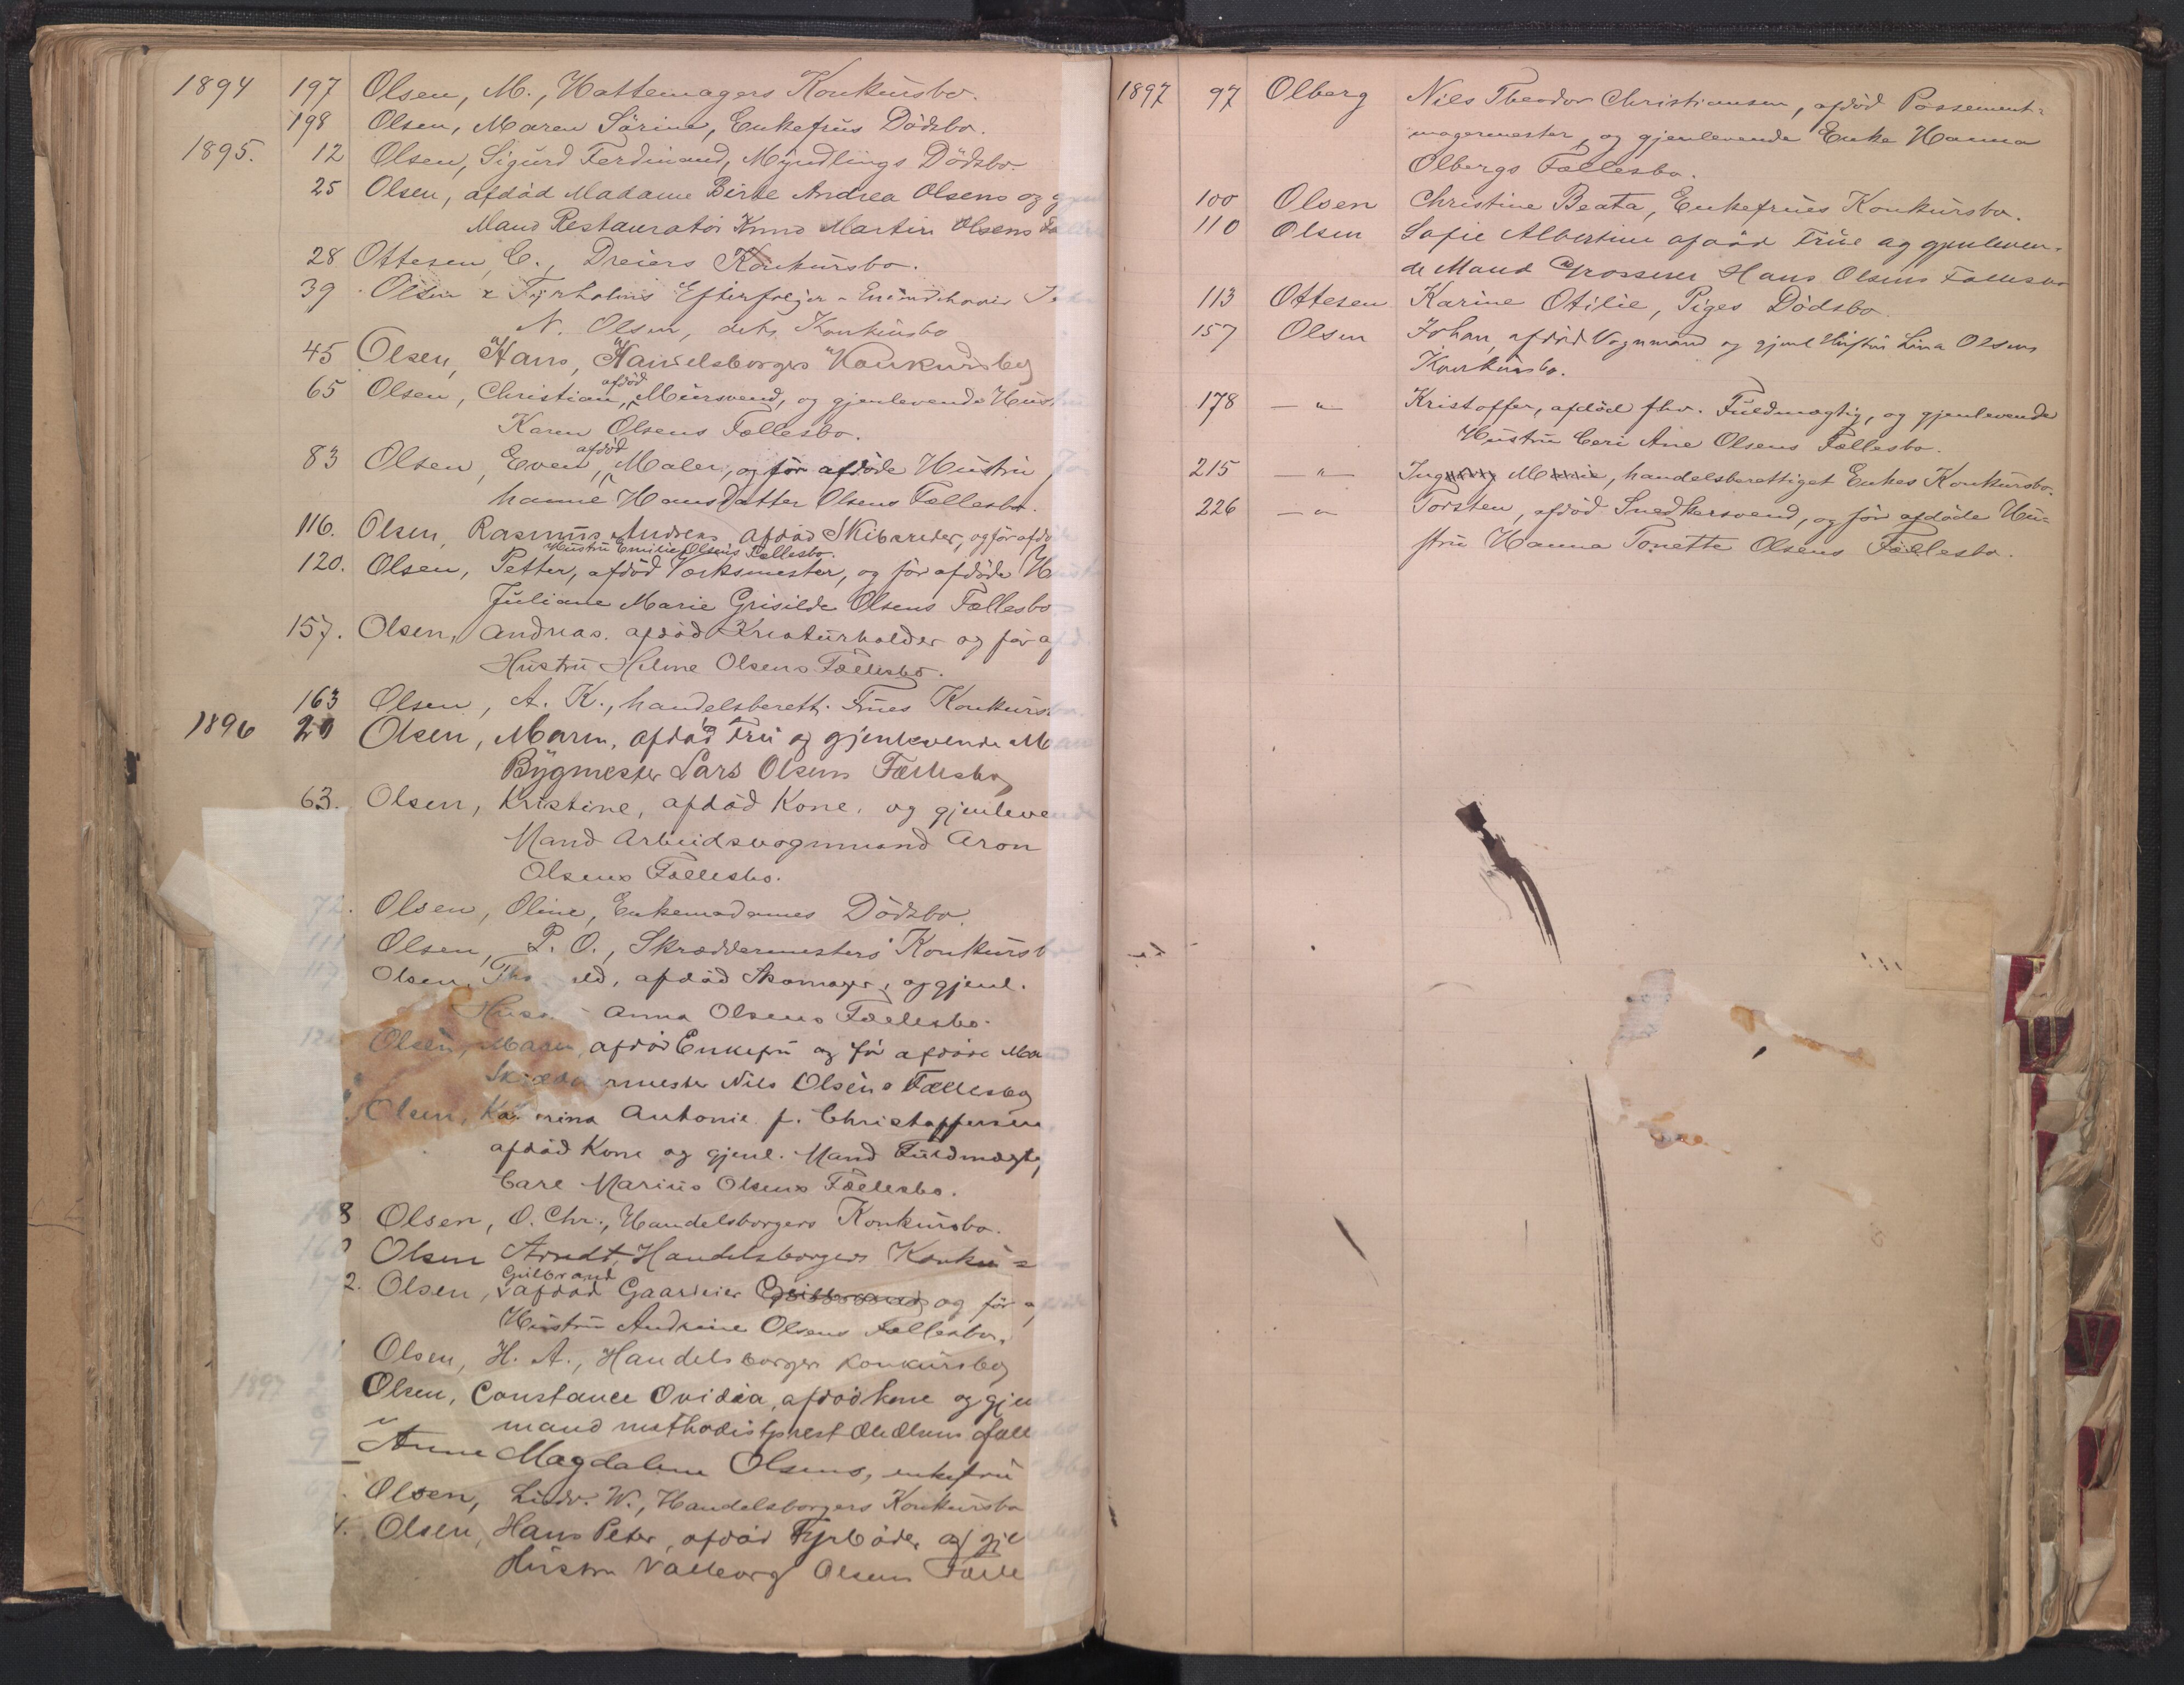 1894 197 Olsen, M., Hattemagers Konkursbo.
198 Olsen, Maren Sörine, Enkefrus Dödsbo.
1895. 12 Olsen, Sigurd Ferdinand, Myndlings Dödsbo.
25 Olsen, afdöd Madame Birte Andrea Olsens og gjen
Mand Restauratör Knud Martin Olsens Fælles
28 Ottesen, C., Dreiers Konkursbo.
39 Olsen & Fyrholms Efterfølger - Eneindehaver
N. Olsen, dets Konkursbo
45 Olsen, Hans, Handelsborgers Konkursbo
65 Olsen, Christian, afdöd Mürsvend, og gjenlevende Hustru
Karen Olsens Fællesbo.
83 Olsen, Even, afdöd Maler, og för afdöde Hustru Jo
hanne Hansdatter Olsens Fællesbo.
116. Olsen, Rasmus Andreas afdöd Skibsreder, og för afdö
Hustru Emilie Olsens Fællesbo.
120. Olsen, Petter, afdöd Værksmester, og för afdöde Hustr
Juliane Marie Grisilde Olsens Fællesbo
157. Olsen, Andreas. afdöd Kreaturholder og för afd
Hustru Helene Olsens Fællesbo.
163 Olsen, A. K., handelsberett. Frues Konkursbo.
1896 20 Olsen, Maren, afdöd Fru og gjenlevende Man
Bygmester Lars Olsens Fællesbo
63. Olsen, Kristine, afdöd Kone, og gjenlevende
Mand Arbeidsvognmand Aron
Olsens Fællesbo.
72. Olsen, Oline, Enkemadames Dödsbo
111 Olsen, P. O., Skræddermesters Konkursbo
117 Olsen, afdöd Skomager, og gjenl.
Anna Olsens Fællesbo.
Olsen, Maren, afdöd Enkefru og för afdöde Mand
Nils Olsens Fællesbo
Olsen, Antonie f. Christoffersen,
afdöd Kone og gjenl. Mand Fuldmægtig
Carl Marius Olsens Fællesbo.
168 Olsen, O. Chr., Handelsborgers Konkursbo.
Olsen Arndt, Handelsborgers Konku=
172. Olsen, Gulbrand afdöd Gaardeier og för afdöde
Hustru Andrine Olsens Fællesbo.
Olsen, H. A., Handelsborgers Konkursbo
1897 Olsen, Constance Ovidia, afdöd kone og gjenl
mand methodistprest Ole Olsens fælle
9 " Anne Magdalene Olsens, enkefru
67. Olsen, Ludv. W., Handelsborgers Konkursbo
Olsen, Hans Peter, afdöd Fyrböder, og gjenl
Hustru Valborg Olsens Fælle
1897 97 Olberg Nils Theodor Christiansen, afdöd Possement=
magermester, og gjenlevende Enke Hanna
Olbergs Fællesbo.
100 Olsen Christine Beata, Enkefrues Konkursbo.
110 Olsen Sofie Albertine afdöd Frue og gjenleven=
de Mand Grosserer Hans Olsens Fællesbo
113 Ottesen Karine Otilie, Piges Dödsbo.
157 Olsen Johan, afdöd Vognmand og gjenl Hustru Lina Olsens
Konkursbo.
178 — " — Kristoffer, afdöd fhv. Fuldmægtig, og gjenlevende
Hustru Ane Olsens Fællesbo.
215 — " — handelsberettiget Enkes Konkursbo.
226 — " — Torsten, afdöd Snedkersvend, og för afdöde Hu=
stru Hanna Tonette Olsens Fællesbo.